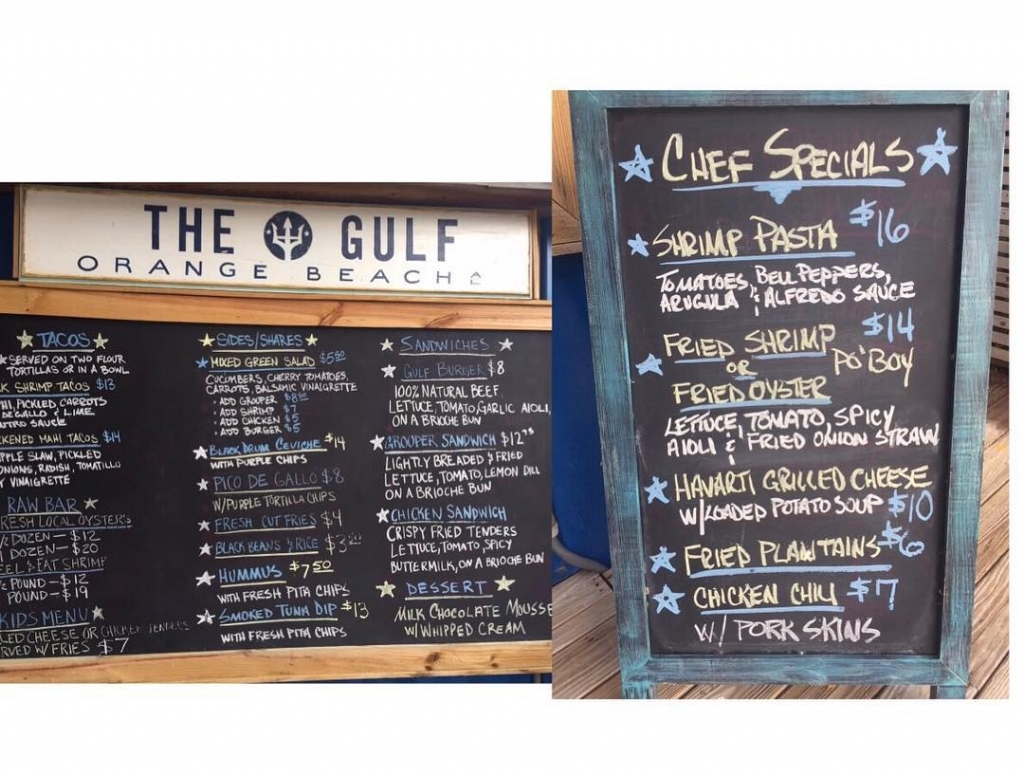 THE GULF
ORANGE BEACH
TACOS
SERVED ON TWO FLOUR
TORTILLAS OR IN A BOWL
SHRIMP TACOS $13
PICKLED CARROTS
DE GALLO & LIME
SAUCE
MAHI TACOS $14
SLAW, PICKLED
ONIONS, RADISH, TOMATILLO
VINAIGRETTE
RAW BAR
FRESH LOCAL OYSTERS
½ DOZEN - $12
DOZEN - $20
PEEL & EAT SHRIMP
½ POUND - $12
POUND - $19
KIDS MENU
CHEESE OR CHICKEN TENDERS
W/ FRIES $7
SIDES/SHARES
MIXED GREEN SALAD $5.50
CUCUMBERS, CHERRY TOMATOES,
CARROTS, BALSAMIC VINAIGRETTE
• ADD GROUPER
• ADD SHRIMP $7
• ADD CHICKEN $5
• ADD BURGER $5
BLACK DRUM CEVICHE $14
WITH PURPLE CHIPS
PICO DE GALLO $8
W/PURPLE TORTILLA CHIPS
FRESH CUT FRIES $4
BLACK BEANS & RICE
HUMMUS $7.50
WITH FRESH PITA CHIPS
SMOKED TUNA DIP $13
WITH FRESH PITA CHIPS
SANDWICHES
GULF BURGER $8
100% NATURAL BEEF
LETTUCE, TOMATO, GARLIC AIOLI,
ON A BRIOCHE BUN
GROUPER SANDWICH
LIGHTLY BREADED & FRIED
LETTUCE, TOMATO, LEMON DILL
ON A BRIOCHE BUN
CHICKEN SANDWICH
CRISPY FRIED TENDERS
LETTUCE, TOMATO, SPICY
BUTTERMILK, ON A BRIOCHE BUN
DESSERT
MILK CHOCOLATE MOUSSE
W/ WHIPPED CREAM
CHEF SPECIALS
SHRIMP PASTA $16
TOMATOES, BELL PEPPERS,
ARUGULA & ALFREDO SAUCE
FRIED SHRIMP $14
OR PO'BOY
FRIED OYSTER
LETTUCE, TOMATO, SPICY
AIOLI & FRIED ONION STRAW
HAVARTI GRILLED CHEESE
W/LOADED POTATO SOUP $10
FRIED PLANTAINS $6
CHICKEN CHILI $7
W/ PORK SKINS